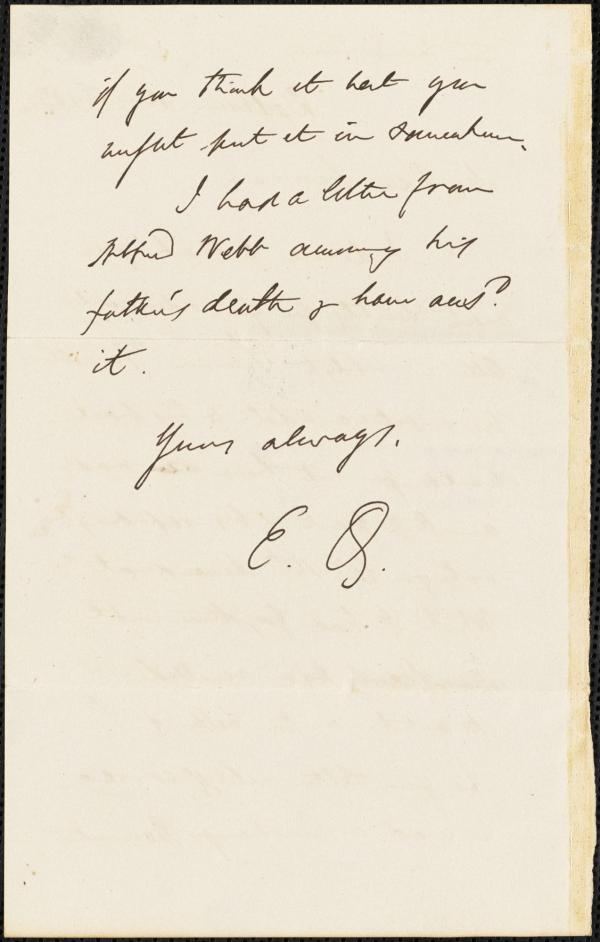 if you think it best you
might put it in somewhere.
I had a letter from
Alfred Webb announcing his
father's death & have ansd.
it.
Yours always,
E. Q.